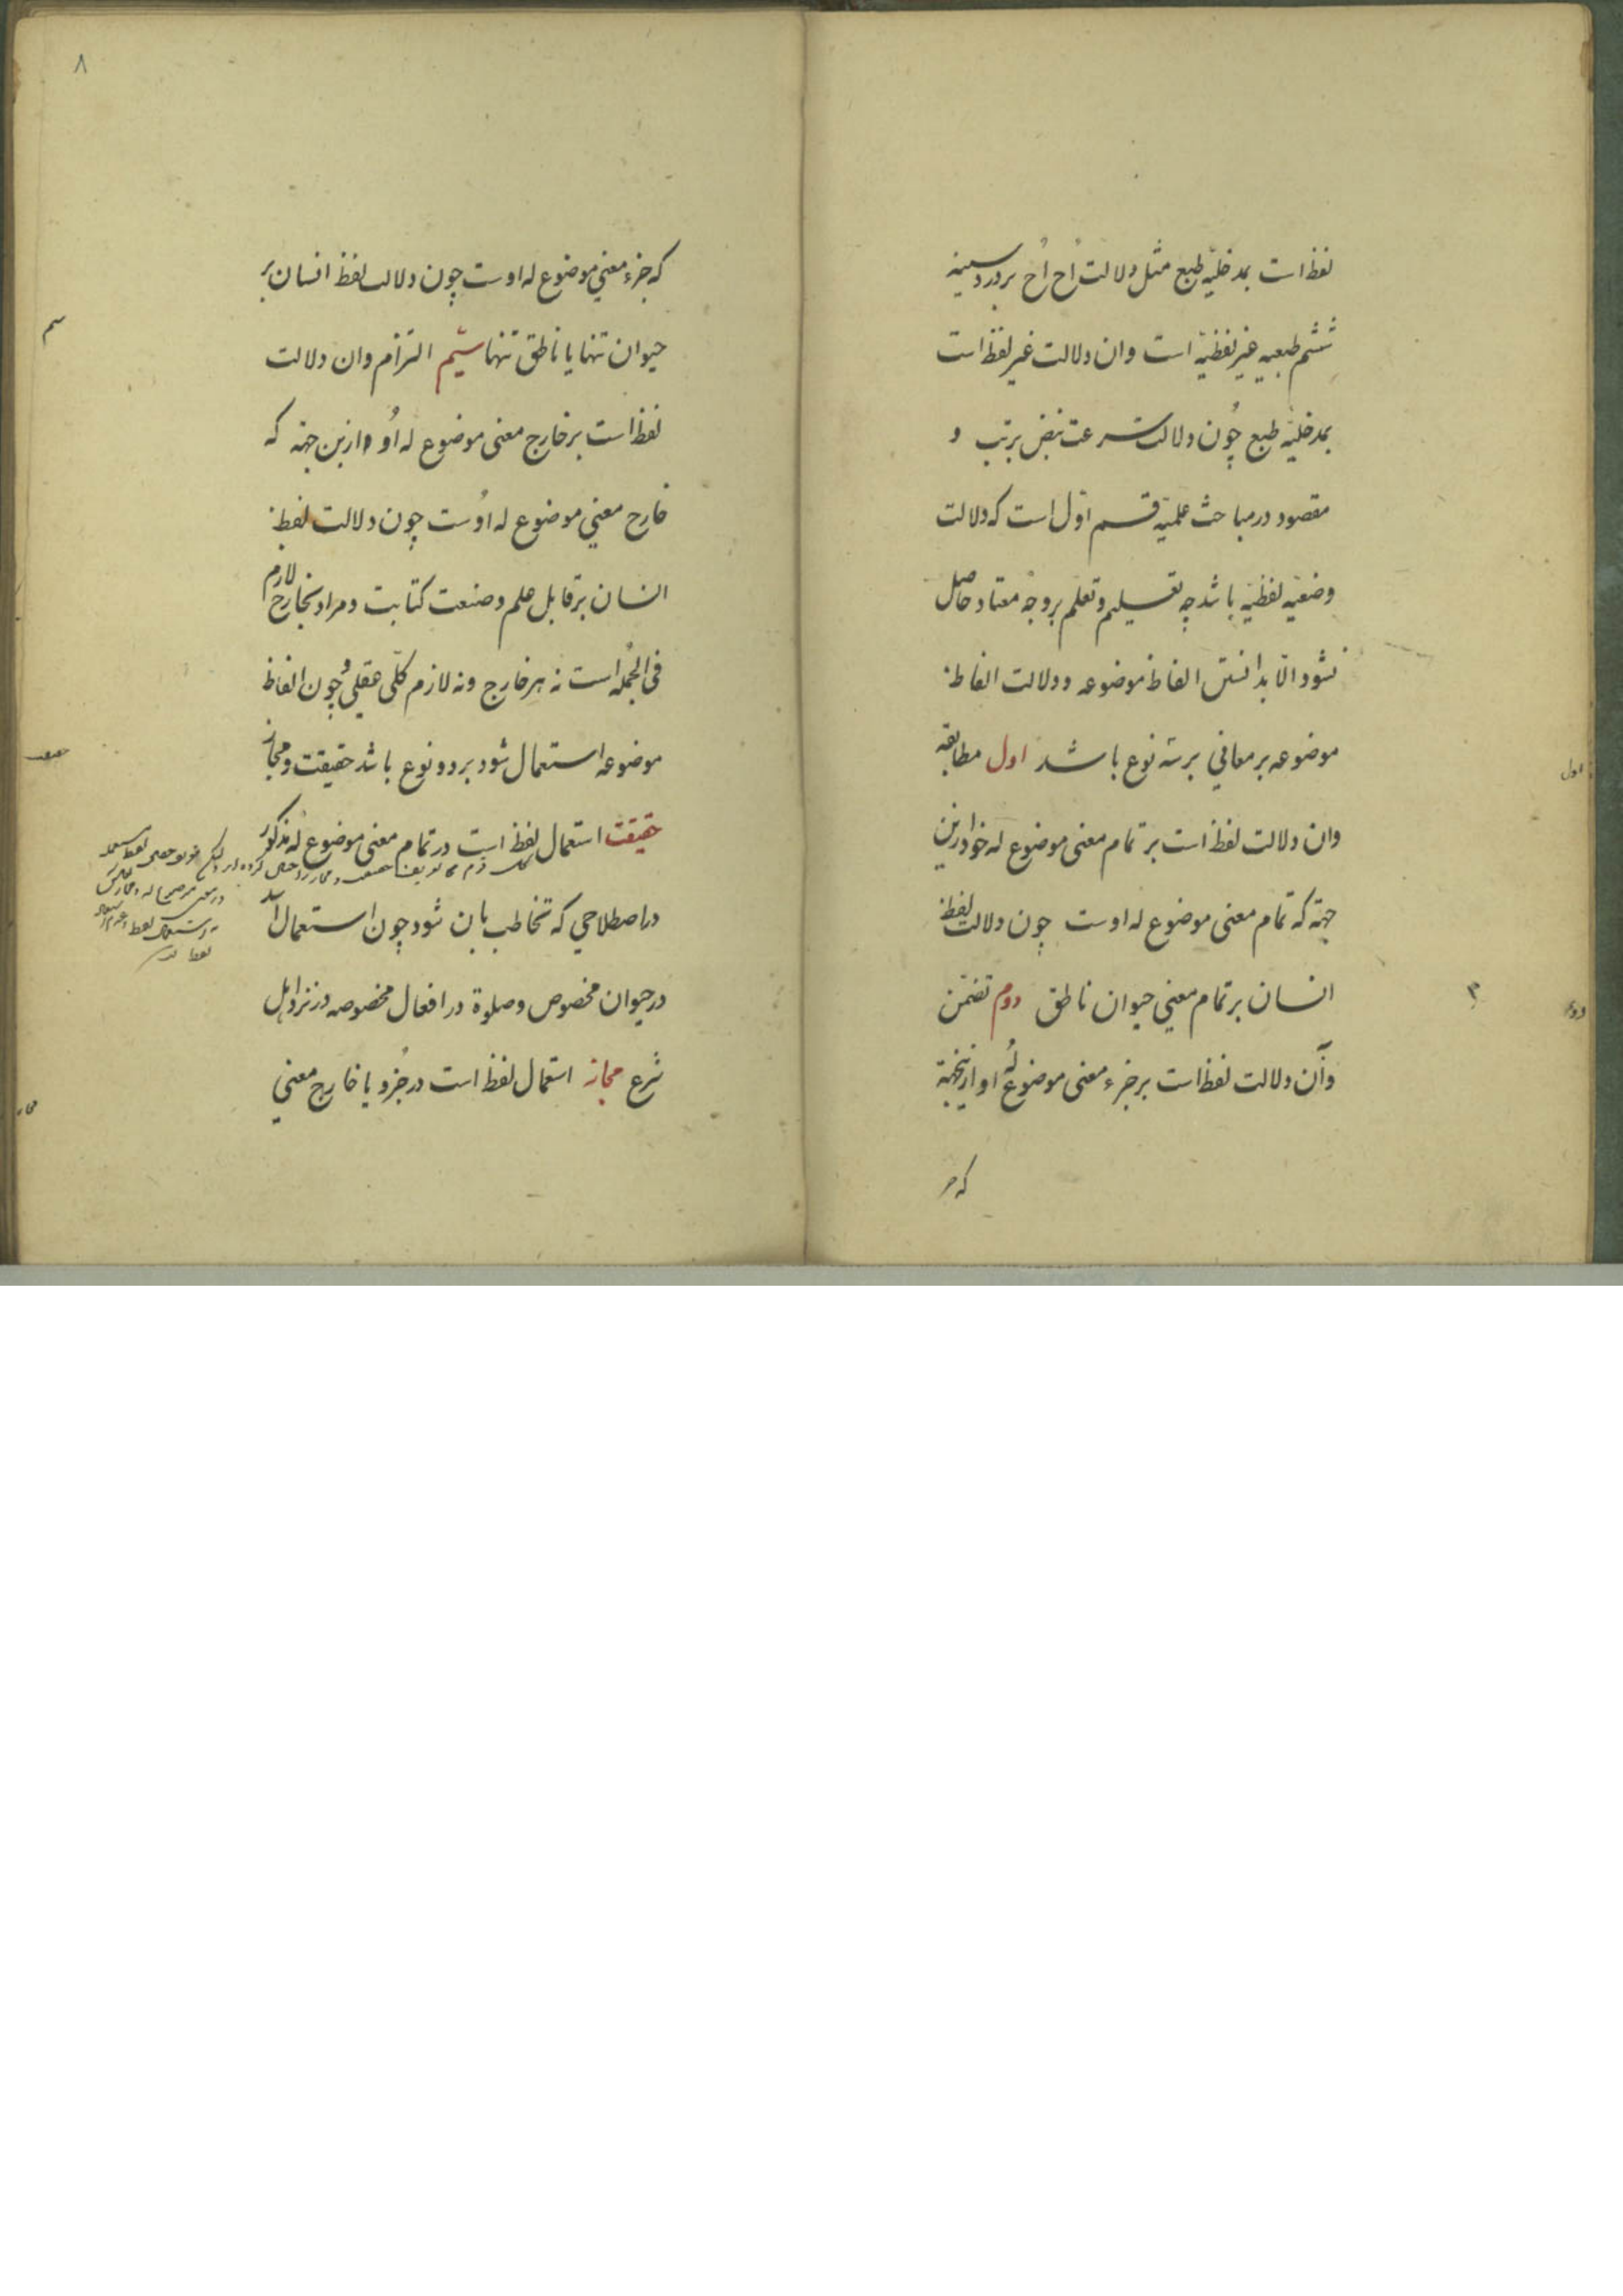 لفظ است بمدخلیّه طبع مثل دلالت اُح اُح بر درد سینه
ششم طبعیه غیر لفظیّه است وان دلالت غیر لفظ است
بمدخلیّه طبع چُون دلالت سرعت نبض بر تب و
مقصود در مباحث علمیّه قسم اوّل است که دلالت
وضعیّه لفظیّه باشد چه تعلیم و تعلم بر وجه معتاد حاصل
نشود الّا بدانستن الفاظ موضوعه و دلالت الفاظ
موضوعه بر معاني بر سه نوع باشد اول مطابقه
وان دلالت لفظ است بر تمام معنی موضوع له خود ازین
جهة که تمام معنی موضوع له اوست چون دلالت لفظ
انسان بر تمام معني حیوان ناطق دوم تضمّن
وآن دلالت لفظ است بر جزء معنی موضوع لُه او ازینجهة
که جز
اول
دوم
۳
۸
که جزء معني موضوع له اوست چون دلالت لفظ انسان بر
حیوان تنها یا ناطق تنها سیُم التزام وان دلالت
لفظ است بر خارج معنی موضوع له اُو ازین جهة که
خارج معني موضوع له اوُست چون دلالت لفظ
انسان بر قابل علم و صنعت کتابت و مراد بخارج لازم
فی الجُمله است نه هر خارج و نه لازم کلّی عقلي و چون الفاظ
موضوعه استعمال شود بر دو نوع باشد حقیقت و مجاز
حقیقت استعمال لفظ است در تمام معنی موضوع لُه مذکور
در اصطلاحي که تخاطب بان شود چون استعمال اسد
در حیوان مخصوص و صلوة در افعال مخصوصه در نزد اهل
شرع مجاز استعمال لفظ است در جُزو یا خارج معني
سیم
حقیقت
مجاز